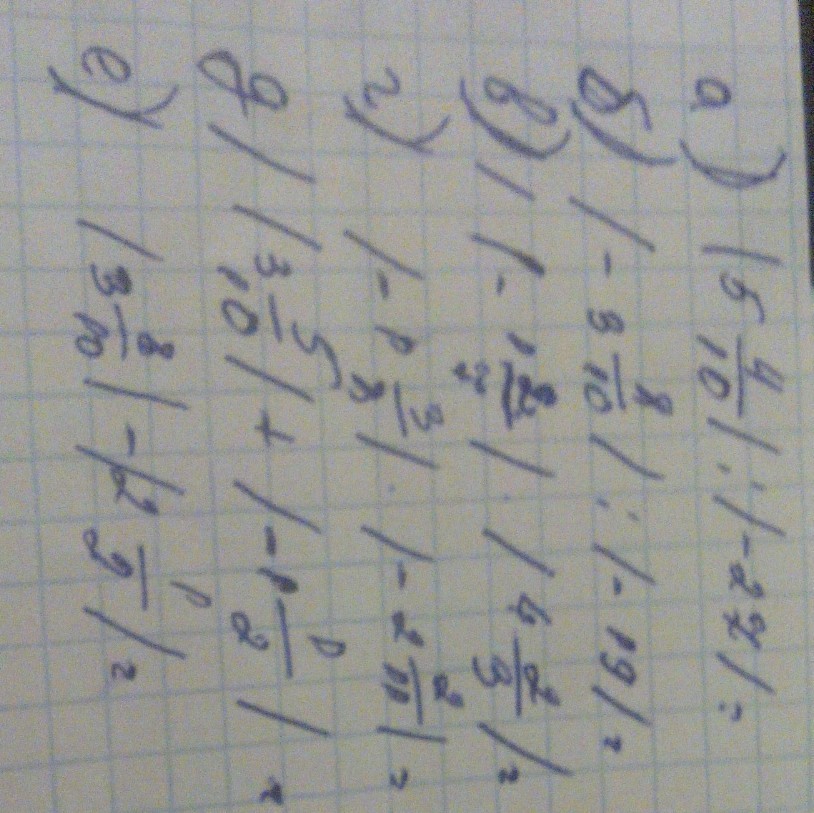 а) |5 4/10| : |-27| =
б) |-3 8/10| : |-19| =
в) | |-1 | · |4 2/3| =
г) |-1 3/8| · |-2 2/11| =
д) | |3 5/10| + |-1 1/2| =
е) |3 8/10| - |2 1/2| =